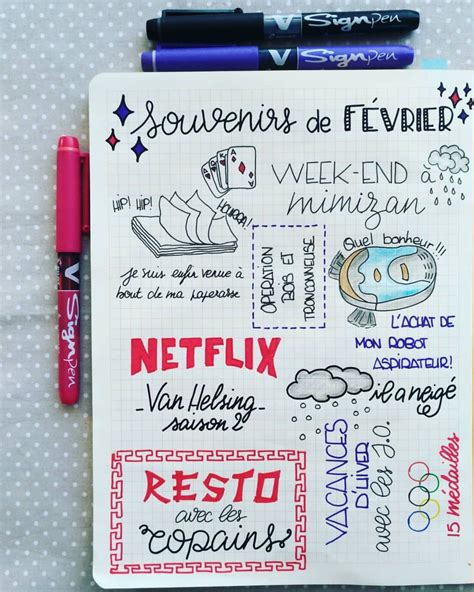 V Sign pen
V Sign pen
V Sign pen
Souvenirs de FÉVRIER
HIP! HIP!
HOURRA!
Je suis enfin venue à
bout de ma paperasse
WEEK-END à
mimizan
OPERATION
BOIS ET
TRONCONNEUSE
Quel bonheur!!!
L'ACHAT DE
MON ROBOT
ASPIRATEUR!
NETFLIX
_Van Helsing_
saison 2
il a neigé
RESTO
avec les
copains
VACANCES
D'HIVER
avec les J.O.
15 médailles